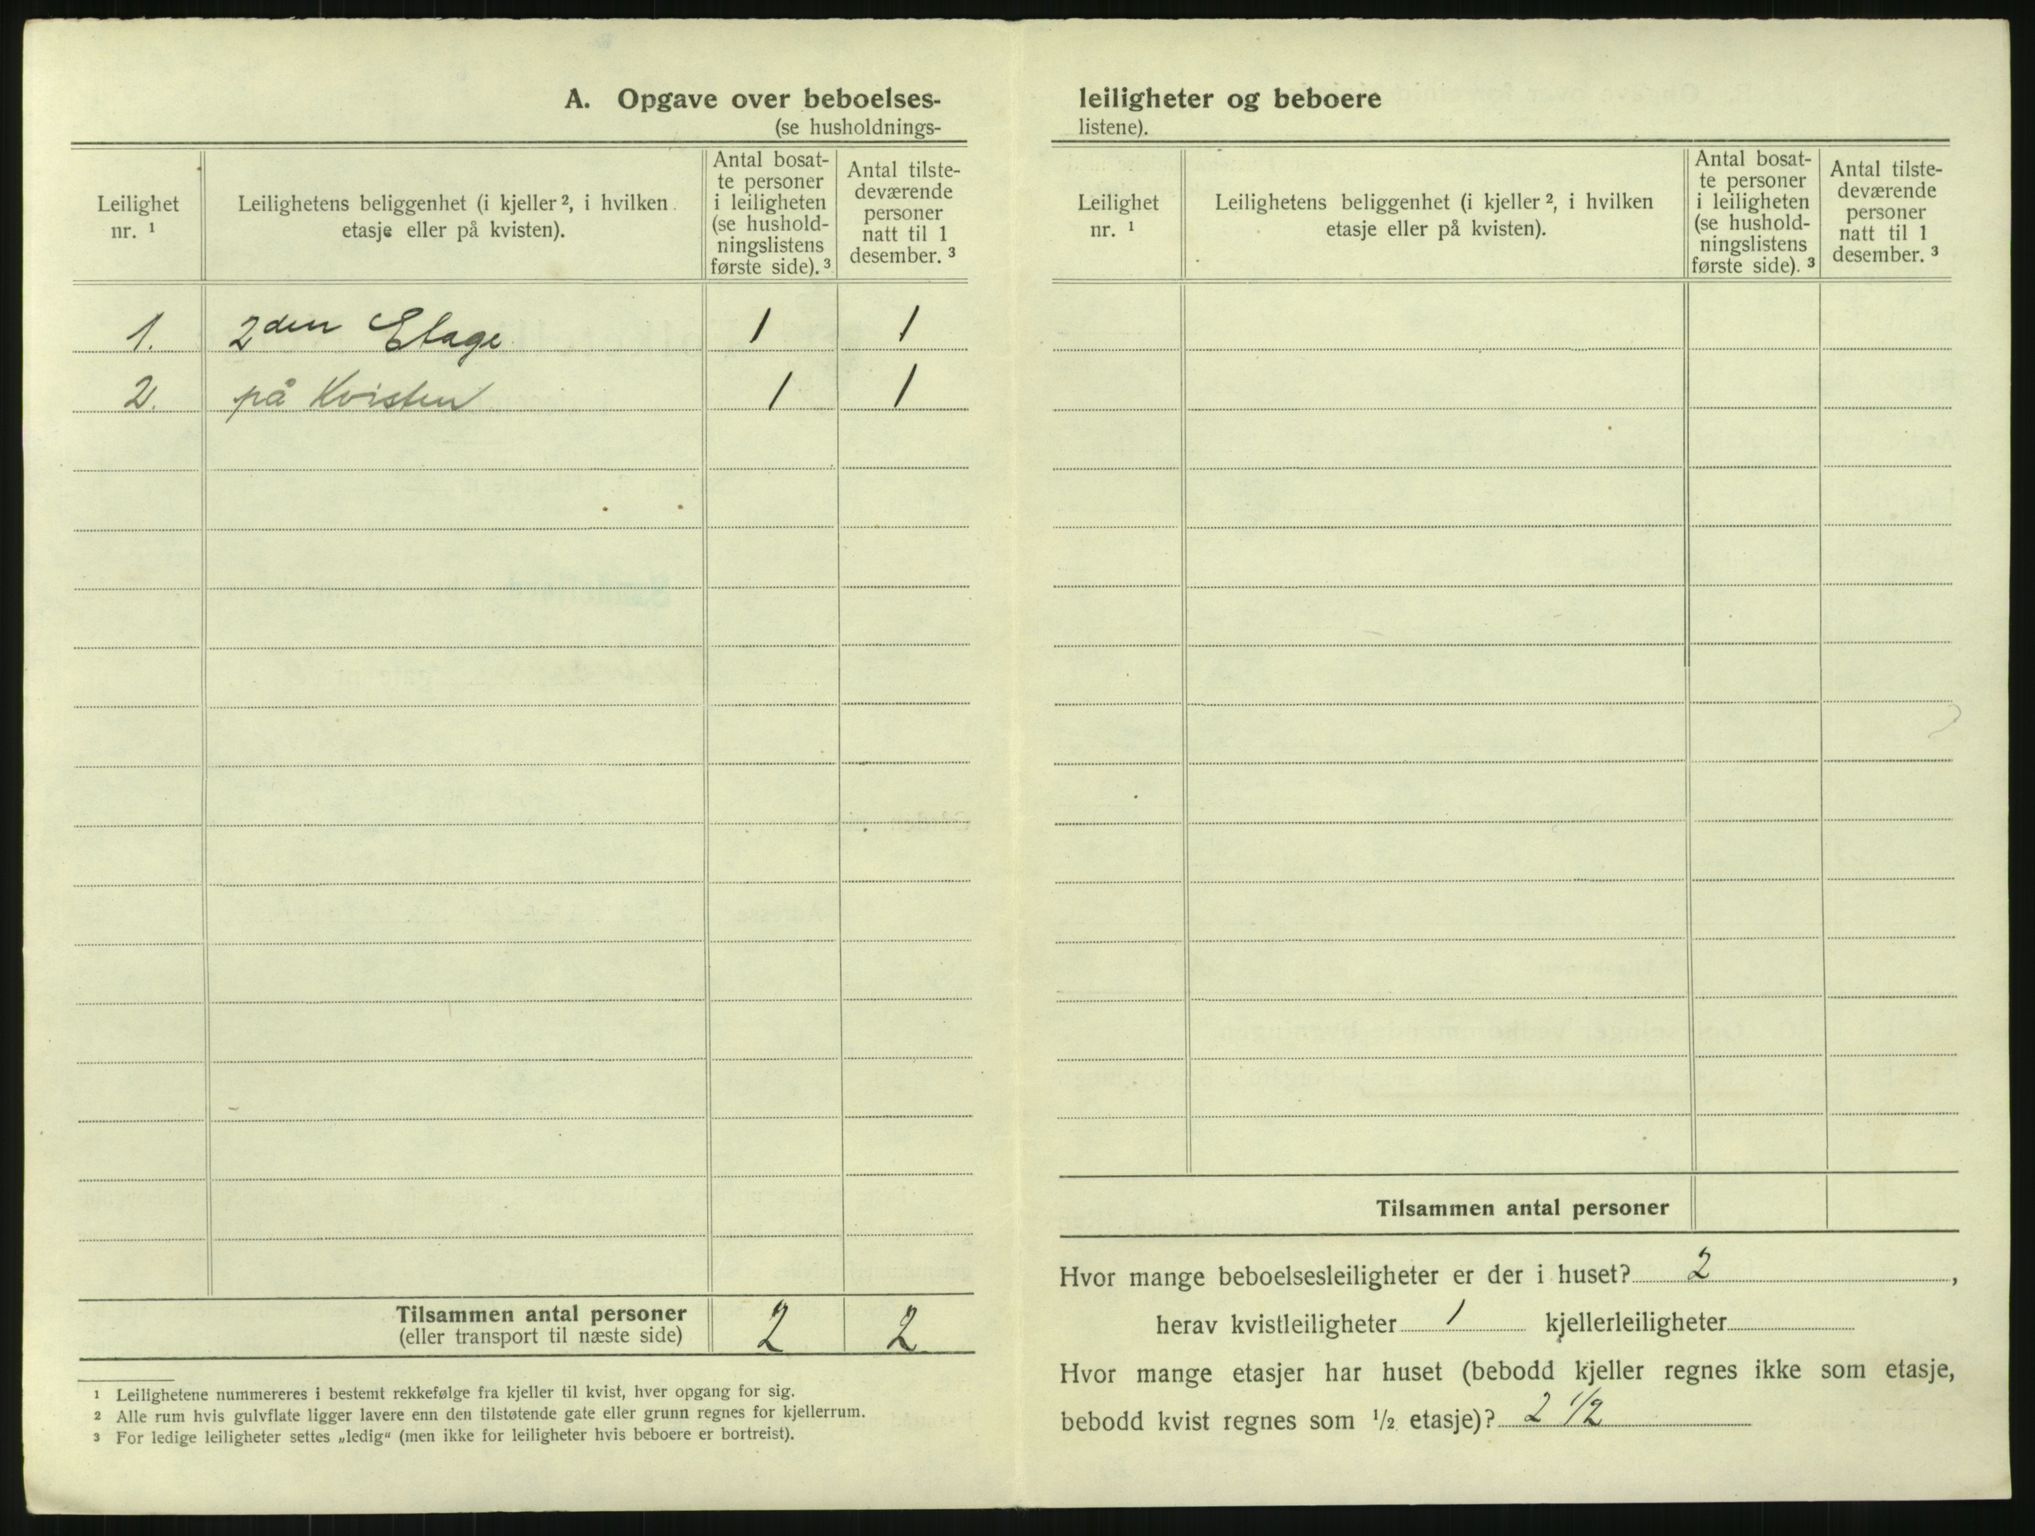 A. Opgave over beboelses-
(se husholdnings-
Leilighet
nr. ¹
Leilighetens beliggenhet (i kjeller ², i hvilken
etasje eller på kvisten).
Antal bosat-
te personer
i leiligheten
(se hushold-
ningslistens
første side). ³
Antal tilste-
deværende
personer
natt til 1
desember. ³
1. 2den Etage 1 1
2. på Kvisten 1 1
Tilsammen antal personer
(eller transport til næste side) 2 2
¹ Leilighetene nummereres i bestemt rekkefølge fra kjeller til kvist, hver opgang for sig.
² Alle rum hvis gulvflate ligger lavere enn den tilstøtende gate eller grunn regnes for kjellerrum.
³ For ledige leiligheter settes „ledig“ (men ikke for leiligheter hvis beboere er bortreist).
leiligheter og beboere
listene).
Leilighet
nr. ¹
Leilighetens beliggenhet (i kjeller ², i hvilken
etasje eller på kvisten).
Antal bosat-
te personer
i leiligheten
(se hushold-
ningslistens
første side). ³
Antal tilste-
deværende
personer
natt til 1
desember. ³
Tilsammen antal personer
Hvor mange beboelsesleiligheter er der i huset? 2,
herav kvistleiligheter 1 kjellerleiligheter
Hvor mange etasjer har huset (bebodd kjeller regnes ikke som etasje,
bebodd kvist regnes som ½ etasje)? 2 ½